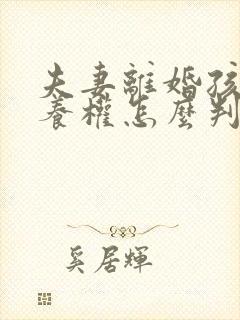 夫妻離婚孩
養權怎麼判
奚居輝